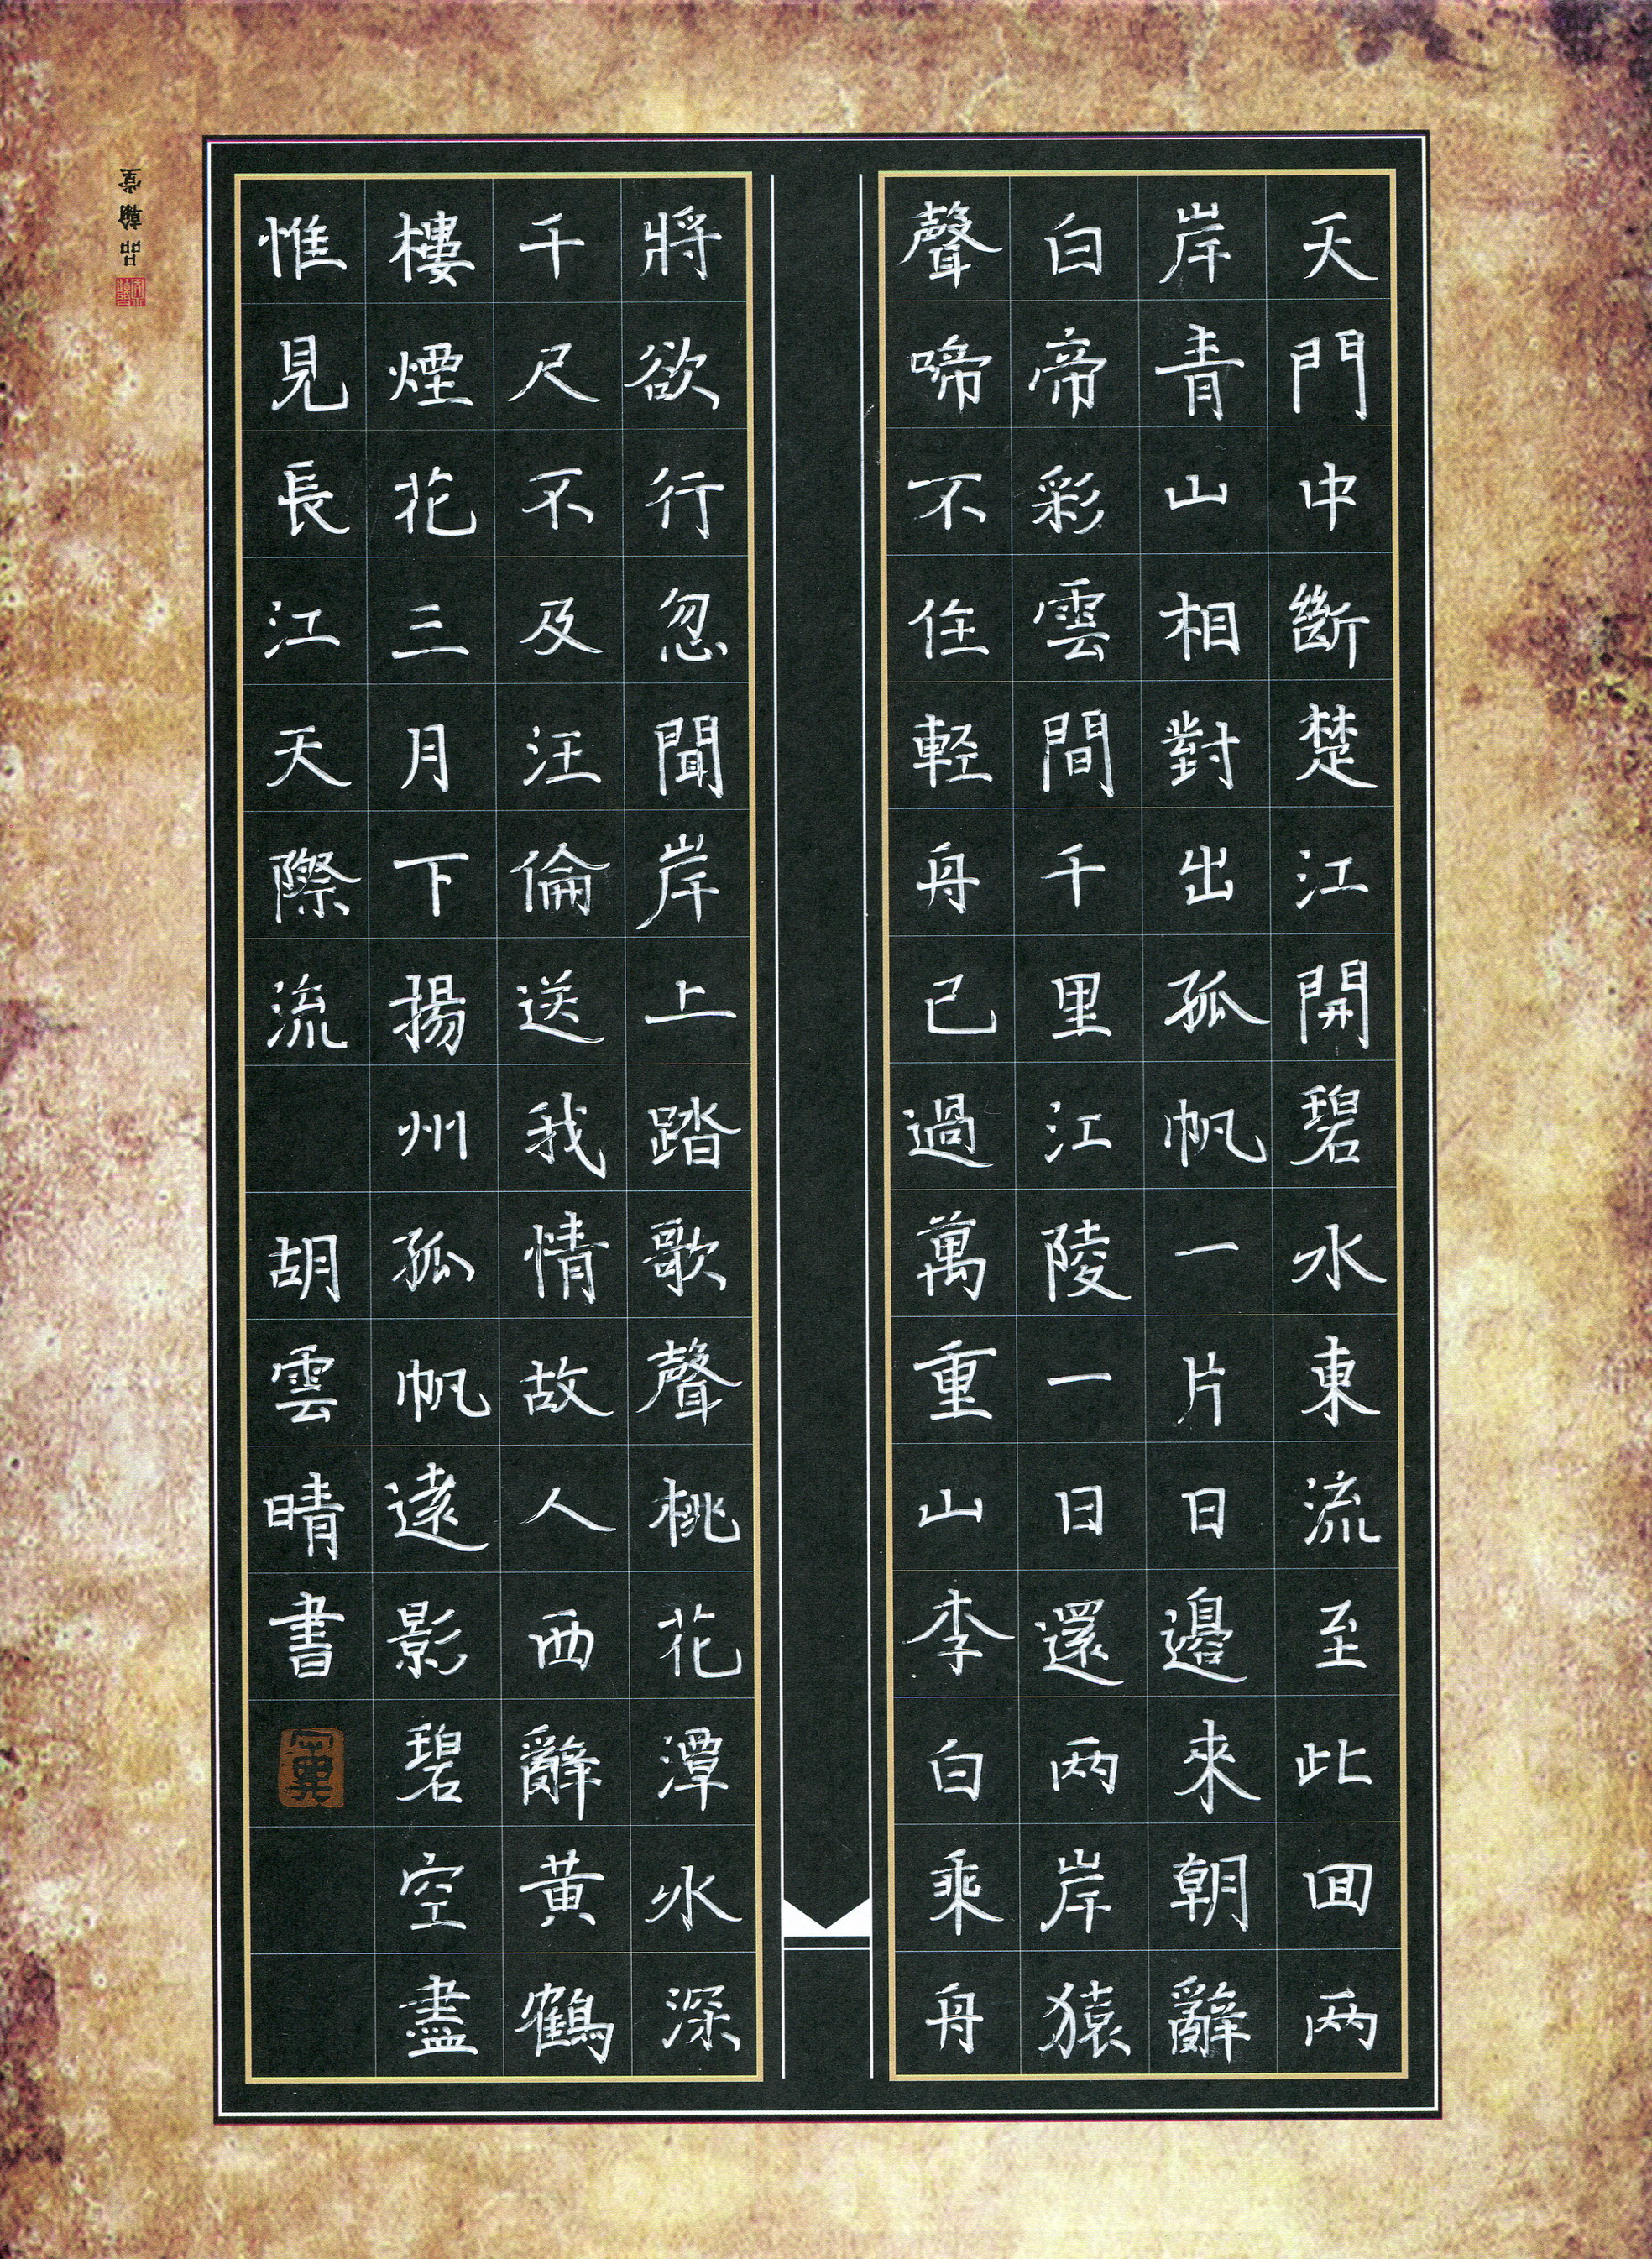 天門中斷楚江開碧水東流至此回两
岸青山相對出孤帆一片日邊來朝辭
白帝彩雲間千里江陵一日還两岸猿
聲啼不住輕舟已過萬重山李白乘舟
將欲行忽聞岸上踏歌聲桃花潭水深
千尺不及汪倫送我情故人西辭黃鶴
樓煙花三月下揚州孤帆遠影碧空盡
惟見長江天際流 胡雲晴書
品翰堂